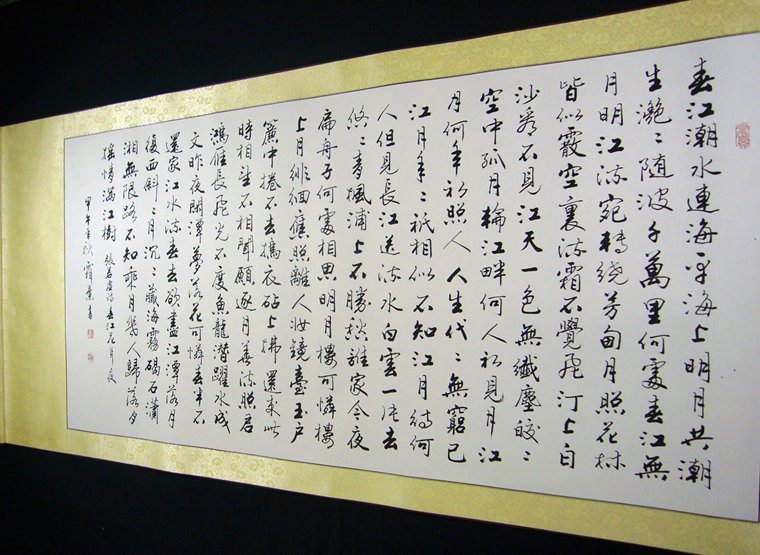 春江潮水連海平海上明月共潮
生灧〻随波千萬里何處春江無
月明江流宛轉繞芳甸月照花林
皆似霰空裏流霜不覺飛汀上白
沙看不見江天一色無纖塵皎〻
空中孤月輪江畔何人初見月江
月何年初照人人生代〻無窮已
江月年〻祇相似不知江月待何
人但見長江送流水白雲一片去
悠〻青楓浦上不勝愁誰家今夜
扁舟子何處相思明月樓可憐樓
上月徘徊應照離人妝鏡臺玉户
簾中捲不去擣衣砧上拂還來此
時相望不相聞願逐月華流照君
鴻雁長飛光不度魚龍潛躍水成
文昨夜閑潭夢落花可憐春半不
還家江水流春去欲盡江潭落月
復西斜〻月沉〻藏海霧碣石瀟
湘無限路不知乘月幾人歸落月
摇情滿江樹 張若虚詩春江花月夜
甲午年秋 霜葉書